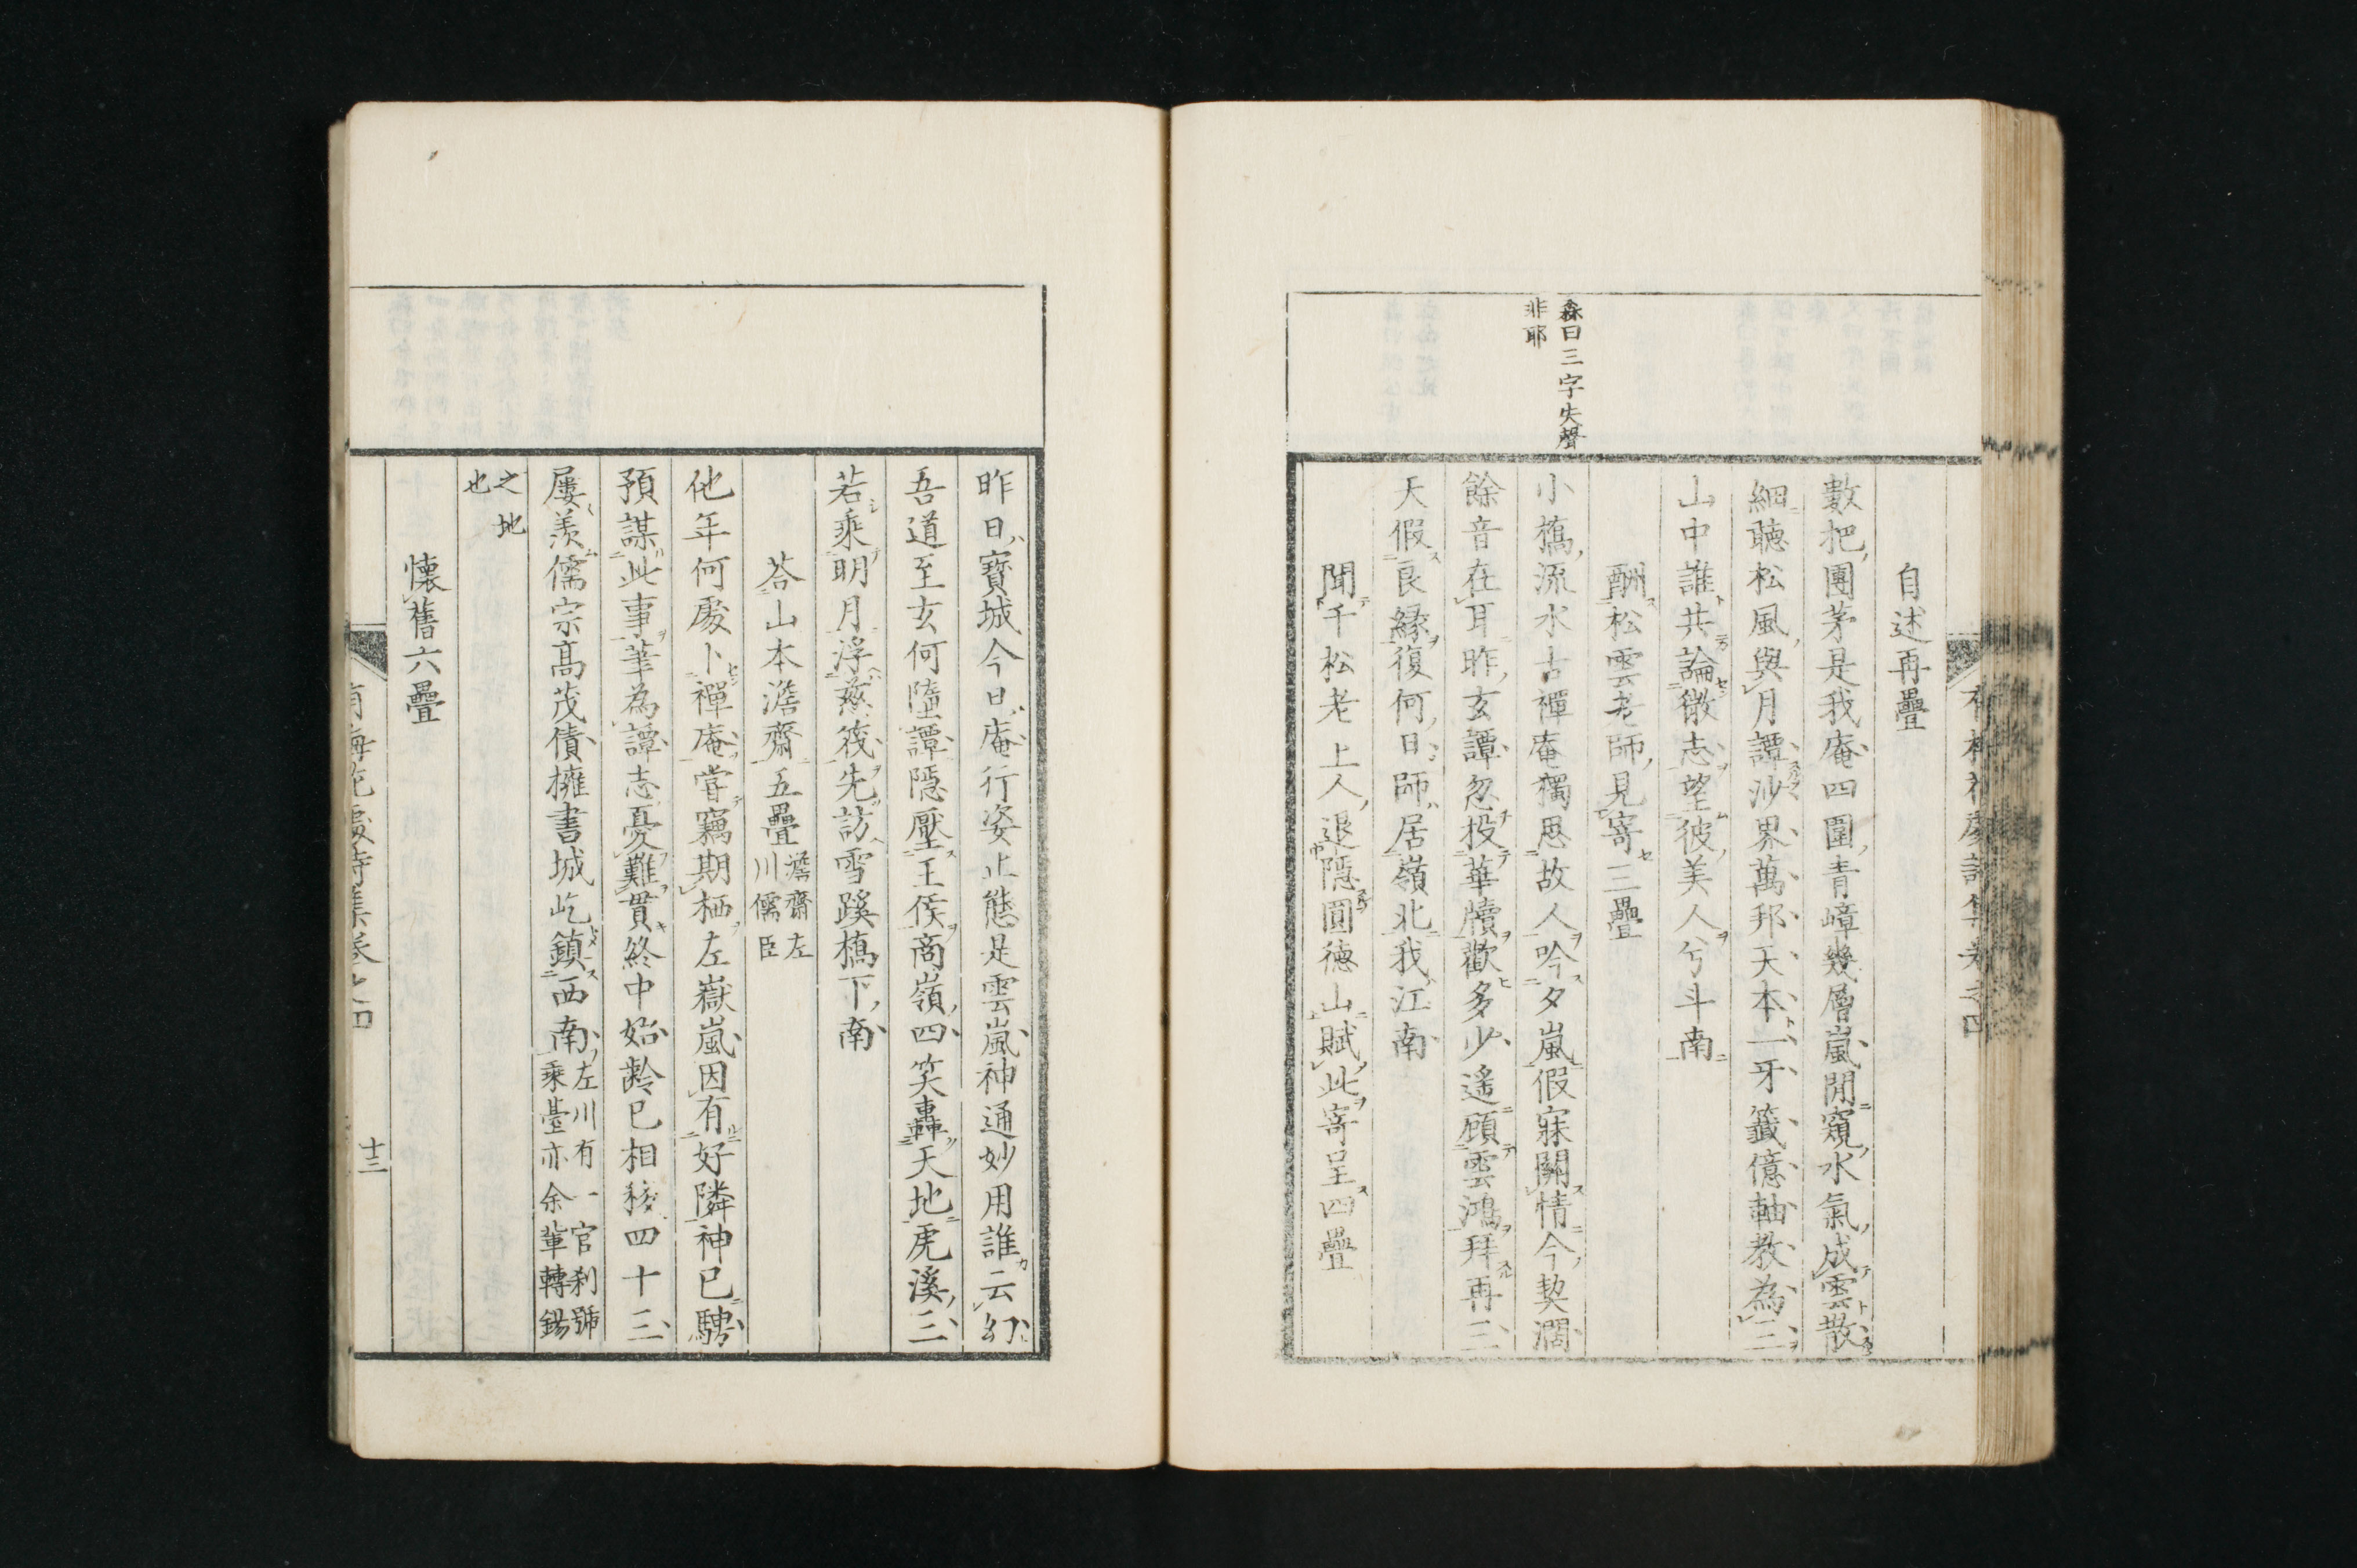 森曰三字失聲
非耶
自述再疊
數把團茅是我庵四圍青嶂幾層嵐閒窺水氣成雲散
細聽松風與月譚沙界萬邦天本一牙籤億軸教為三
山中誰共論微志望彼美人兮斗南
酬松雲老師見寄三疊
小橋流水古禪庵獨思故人吟夕嵐假寐關情今契濶
餘音在耳昨玄譚忽投華牘歡多少遙顧雲鴻拜再三
天假良緣復何日師居嶺北我江南
聞千松老上人退隱圓德山賦此寄呈四疊
昨日寶城今日庵行姿止態是雲嵐神通妙用誰云幻
吾道至玄何墮譚隱壓王侯商嶺四笑轟天地虎溪三
若乘明月浮慈筏先訪雪蹊橋下南
荅山本澹齋五疊
澹齋左
川儒臣
他年何處卜禪庵嘗竊期栖左嶽嵐因有好隣神已騁
預謀此事華為譚志憂難貫終中始齡已相移四十三
屢羨儒宗高茂債擁書城屹鎮西南
左川有一官刹號
乘臺亦余輩轉錫
之地
也
懷舊六疊
南梅花處詩集卷之四
十三